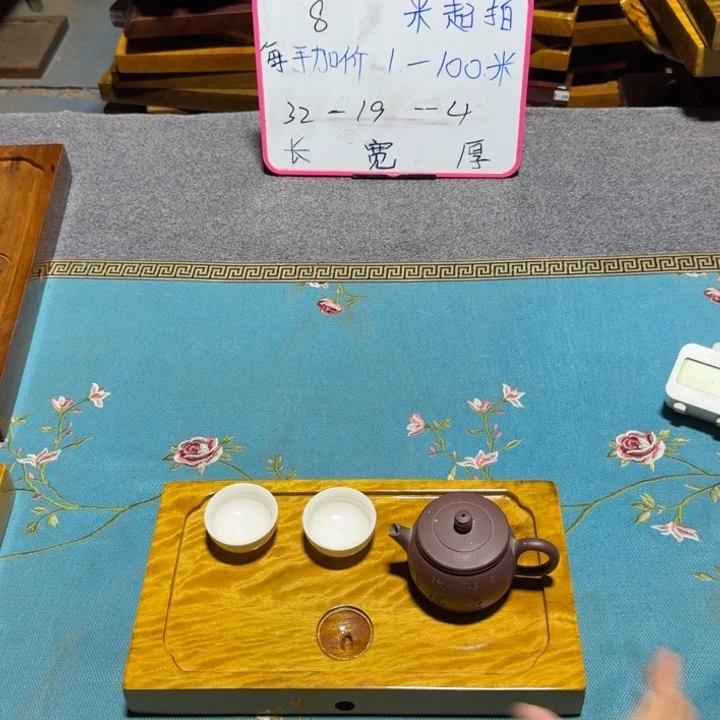 8 米起拍
每手加价 1-100米
32-19--4
长 宽 厚